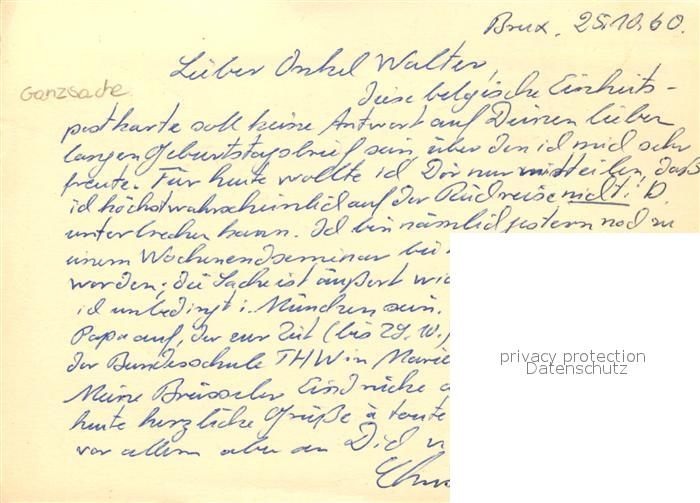 Brux. 25.10.60.
Lieber Onkel Walter,
Ganzsache
diese belgische Einheits-
postkarte soll keine Antwort auf Deinen lieben
langen Geburtstagsbrief sein, über den ich mich sehr
freute. Für heute wollte ich Dir nur mitteilen, daß
ich höchstwahrscheinlich auf der Rückreise nicht i. D.
unterbrechen kann. Ich bin nämlich gestern noch zu
einem Wochenendseminar bei
worden; die Sache ist äußerst wic
ich unbedingt i. München sein.
Papa auf, der zur Zeit (bis
der Bundesschule THW in Marie
Meine Brüsseler Eindrücke
heute herzliche Grüße à toute
vor allem aber an Dich
privacy protection
Datenschutz